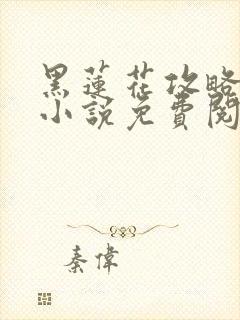 黑蓮花攻略
小說免費閱
秦偉